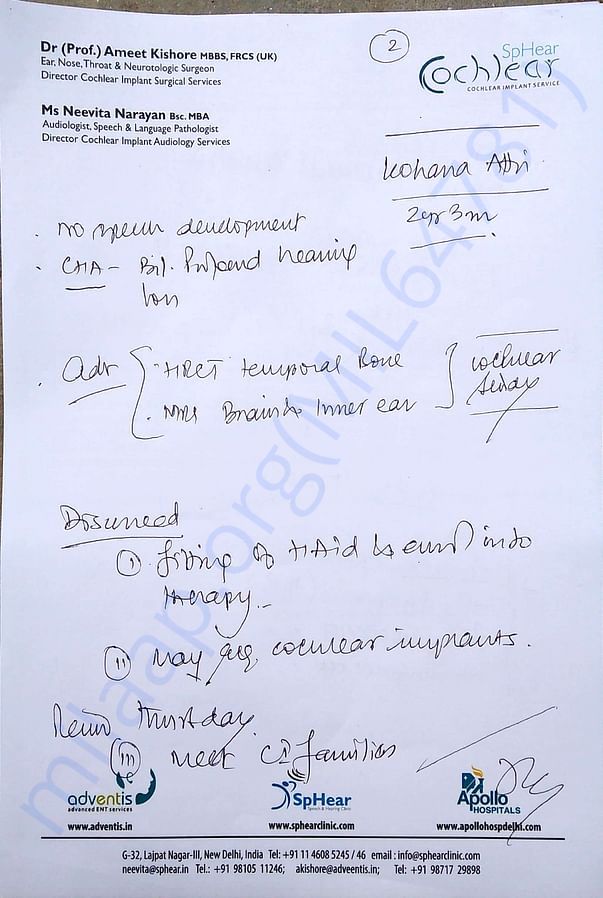 Dr (Prof.) Ameet Kishore MBBS, FRCS (UK)
Ear, Nose, Throat & Neurotologic Surgeon
Director Cochlear Implant Surgical Services
Ms Neevita Narayan Bsc. MBA
Audiologist, Speech & Language Pathologist
Director Cochlear Implant Audiology Services
2
SpHear
Cochlear
COCHLEAR IMPLANT SERVICE
Kohana Attri
2yr 3m
. no speech development
. CHA - Bil. Profound hearing
loss
. Adv
. HRCT temporal Bone
. MRI Brain & Inner ear
cochlear
Discussed
(i) fitting of HAid & enrol into
therapy.
(ii) may req. cochlear implants.
Thursday
(iii) meet CI families
adventis
advanced ENT services
www.adventis.in
SpHear
Speech & Hearing Clinic
www.sphearclinic.com
Apollo
HOSPITALS
www.apollohospdelhi.com
G-32, Lajpat Nagar-III, New Delhi, India Tel: +91 11 4608 5245 / 46 email : info@sphearclinic.com
neevita@sphear.in Tel.: +91 98105 11246; akishore@adveentis.in; Tel: +91 98717 29898
milaap.org(MIL64781)